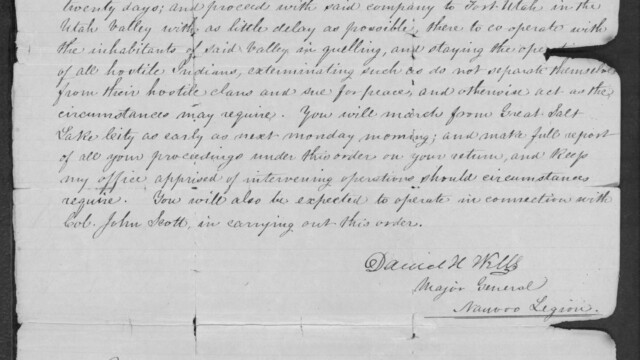 twenty days; and proceed with said company to Fort Utah in the
Utah Valley with as little delay as possible, there to co operate with
the inhabitants of said Valley in quelling, and staying the
of all hostile Indians, exterminating such as do not separate themselve
from their hostile clans and sue for peace, and otherwise act as the
circumstances may require. You will march from Great Salt
Lake City as early as next monday morning; and make full report
of all your proceedings under this order on your return, and keep
my office apprised of intervening operations should circumstances
require. You will also be expected to operate in connection with
Col. John Scott, in carrying out this order.
Daniel H Wells
Major General
Nauvoo Legion.